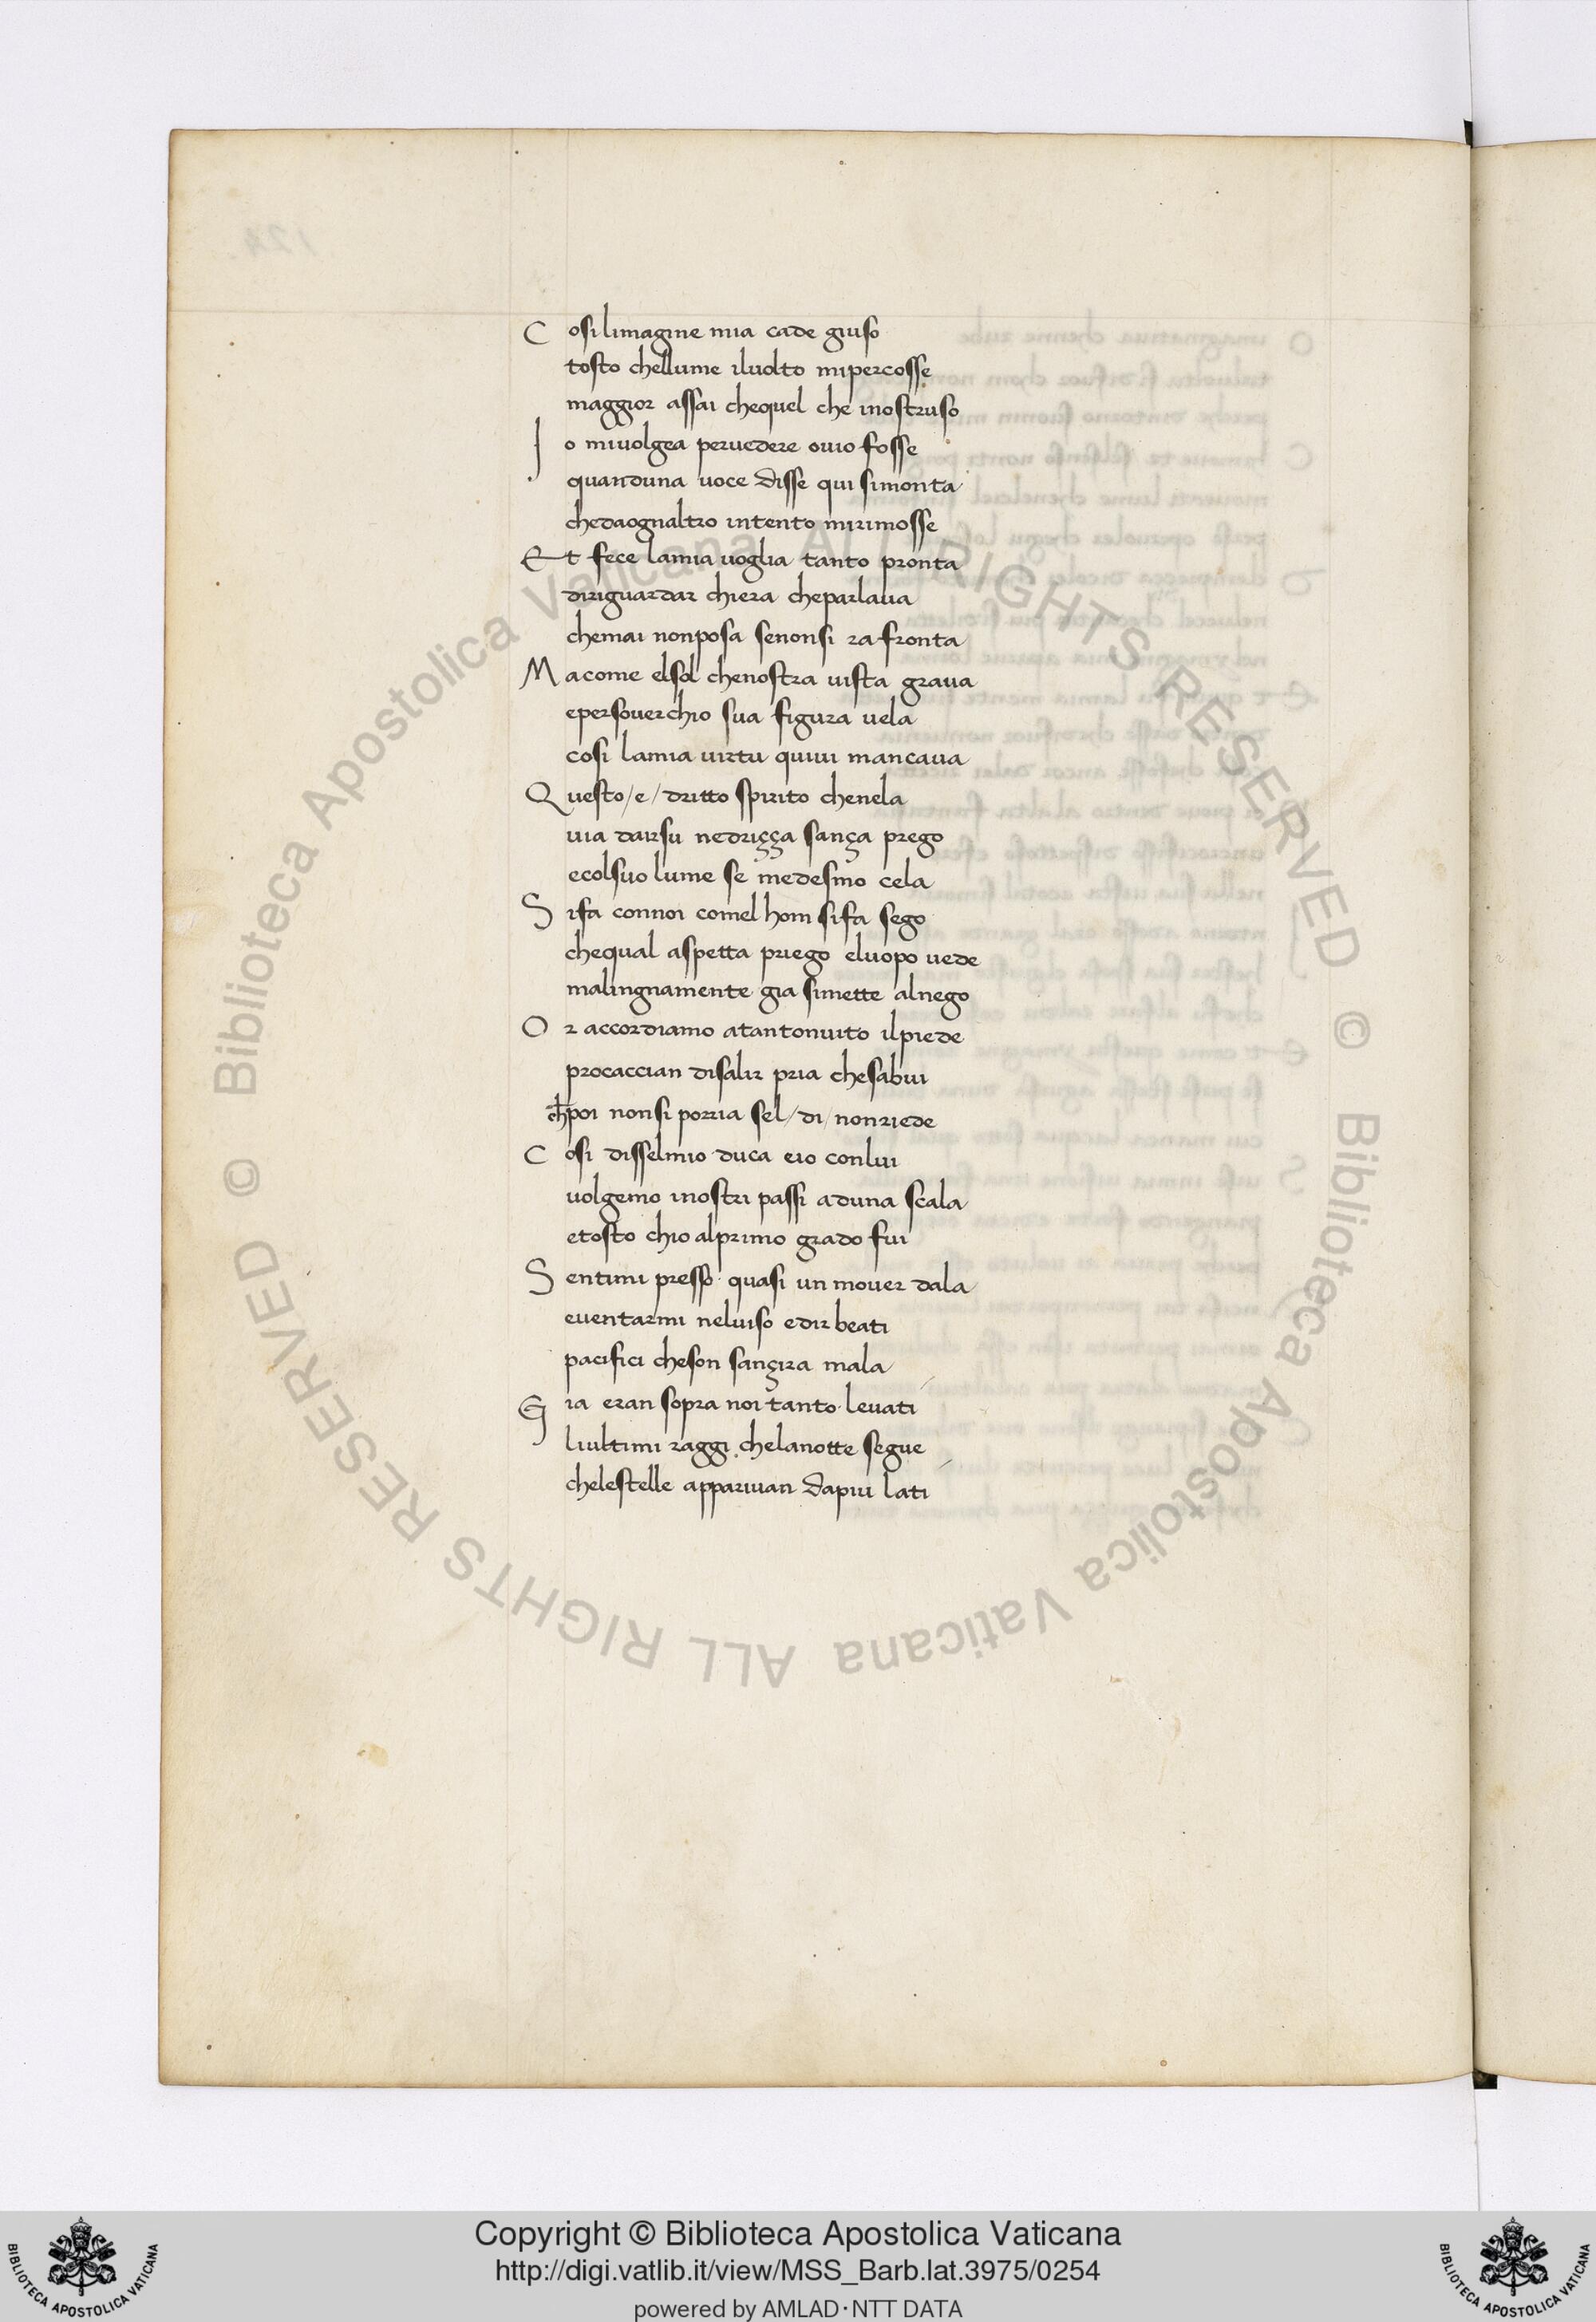 C osi limagine mia cade giuso
tosto chellume iluolto mipercosse
maggior assai chequel che inostruso
I o miuolgea peruedere ouio fosse
quanduna uoce disse qui simonta
chedaognaltro intento mirimosse
Et fece lamia uoglia tanto pronta
diriguardar chiera cheparlaua
chemai nonposa senonsi rafronta
M acome elsol chenostra uista graua
epersouerchio sua figura uela
cosi lamia uirtu quiui mancaua
Q uesto/e/dritto spirito chenela
uia dairsu nedriçça sança prego
ecolsuo lume se medesmo cela
S ifa connoi comel hom sifa sego
chequal aspetta priego eluopo uede
malingnamente gia simette alnego
O r accordiamo atantonuito ilpiede
procaccian disalir pria chesabui
ch̄poi nonsi porria sel/di/nonriede
C osi disselmio duca eio conlui
uolgemo inostri passi aduna scala
etosto chio alprimo grado fui
S entimi presso quasi un mouer dala
euentarmi neluiso edir beati
pacifici cheson sançira mala
G ia eran sopra noi tanto leuati
liultimi raggi chelanotte segue
chelestelle appariuan dapiu lati
Copyright © Biblioteca Apostolica Vaticana
http://digi.vatlib.it/view/MSS_Barb.lat.3975/0254
powered by AMLAD·NTT DATA
© Biblioteca Apostolica Vaticana ALL RIGHTS RESERVED © Biblioteca Apostolica Vaticana ALL RIGHTS RESERVED
BIBLIOTECA APOSTOLICA VATICANA
BIBLIOTECA APOSTOLICA VATICANA